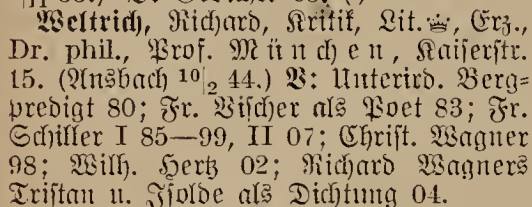 Weltrich, Richard, Kritik, Lit. Erz.,
Dr. phil., Prof. München, Kaiserstr.
15. (Ansbach 10|2 44.) V: Unterird. Berg-
predigt 80; Fr. Vischer als Poet 83; Fr.
Schiller I 85—99, II 07; Christ. Wagner
98; Wilh. Hertz 02; Richard Wagners
Tristan u. Isolde als Dichtung 04.